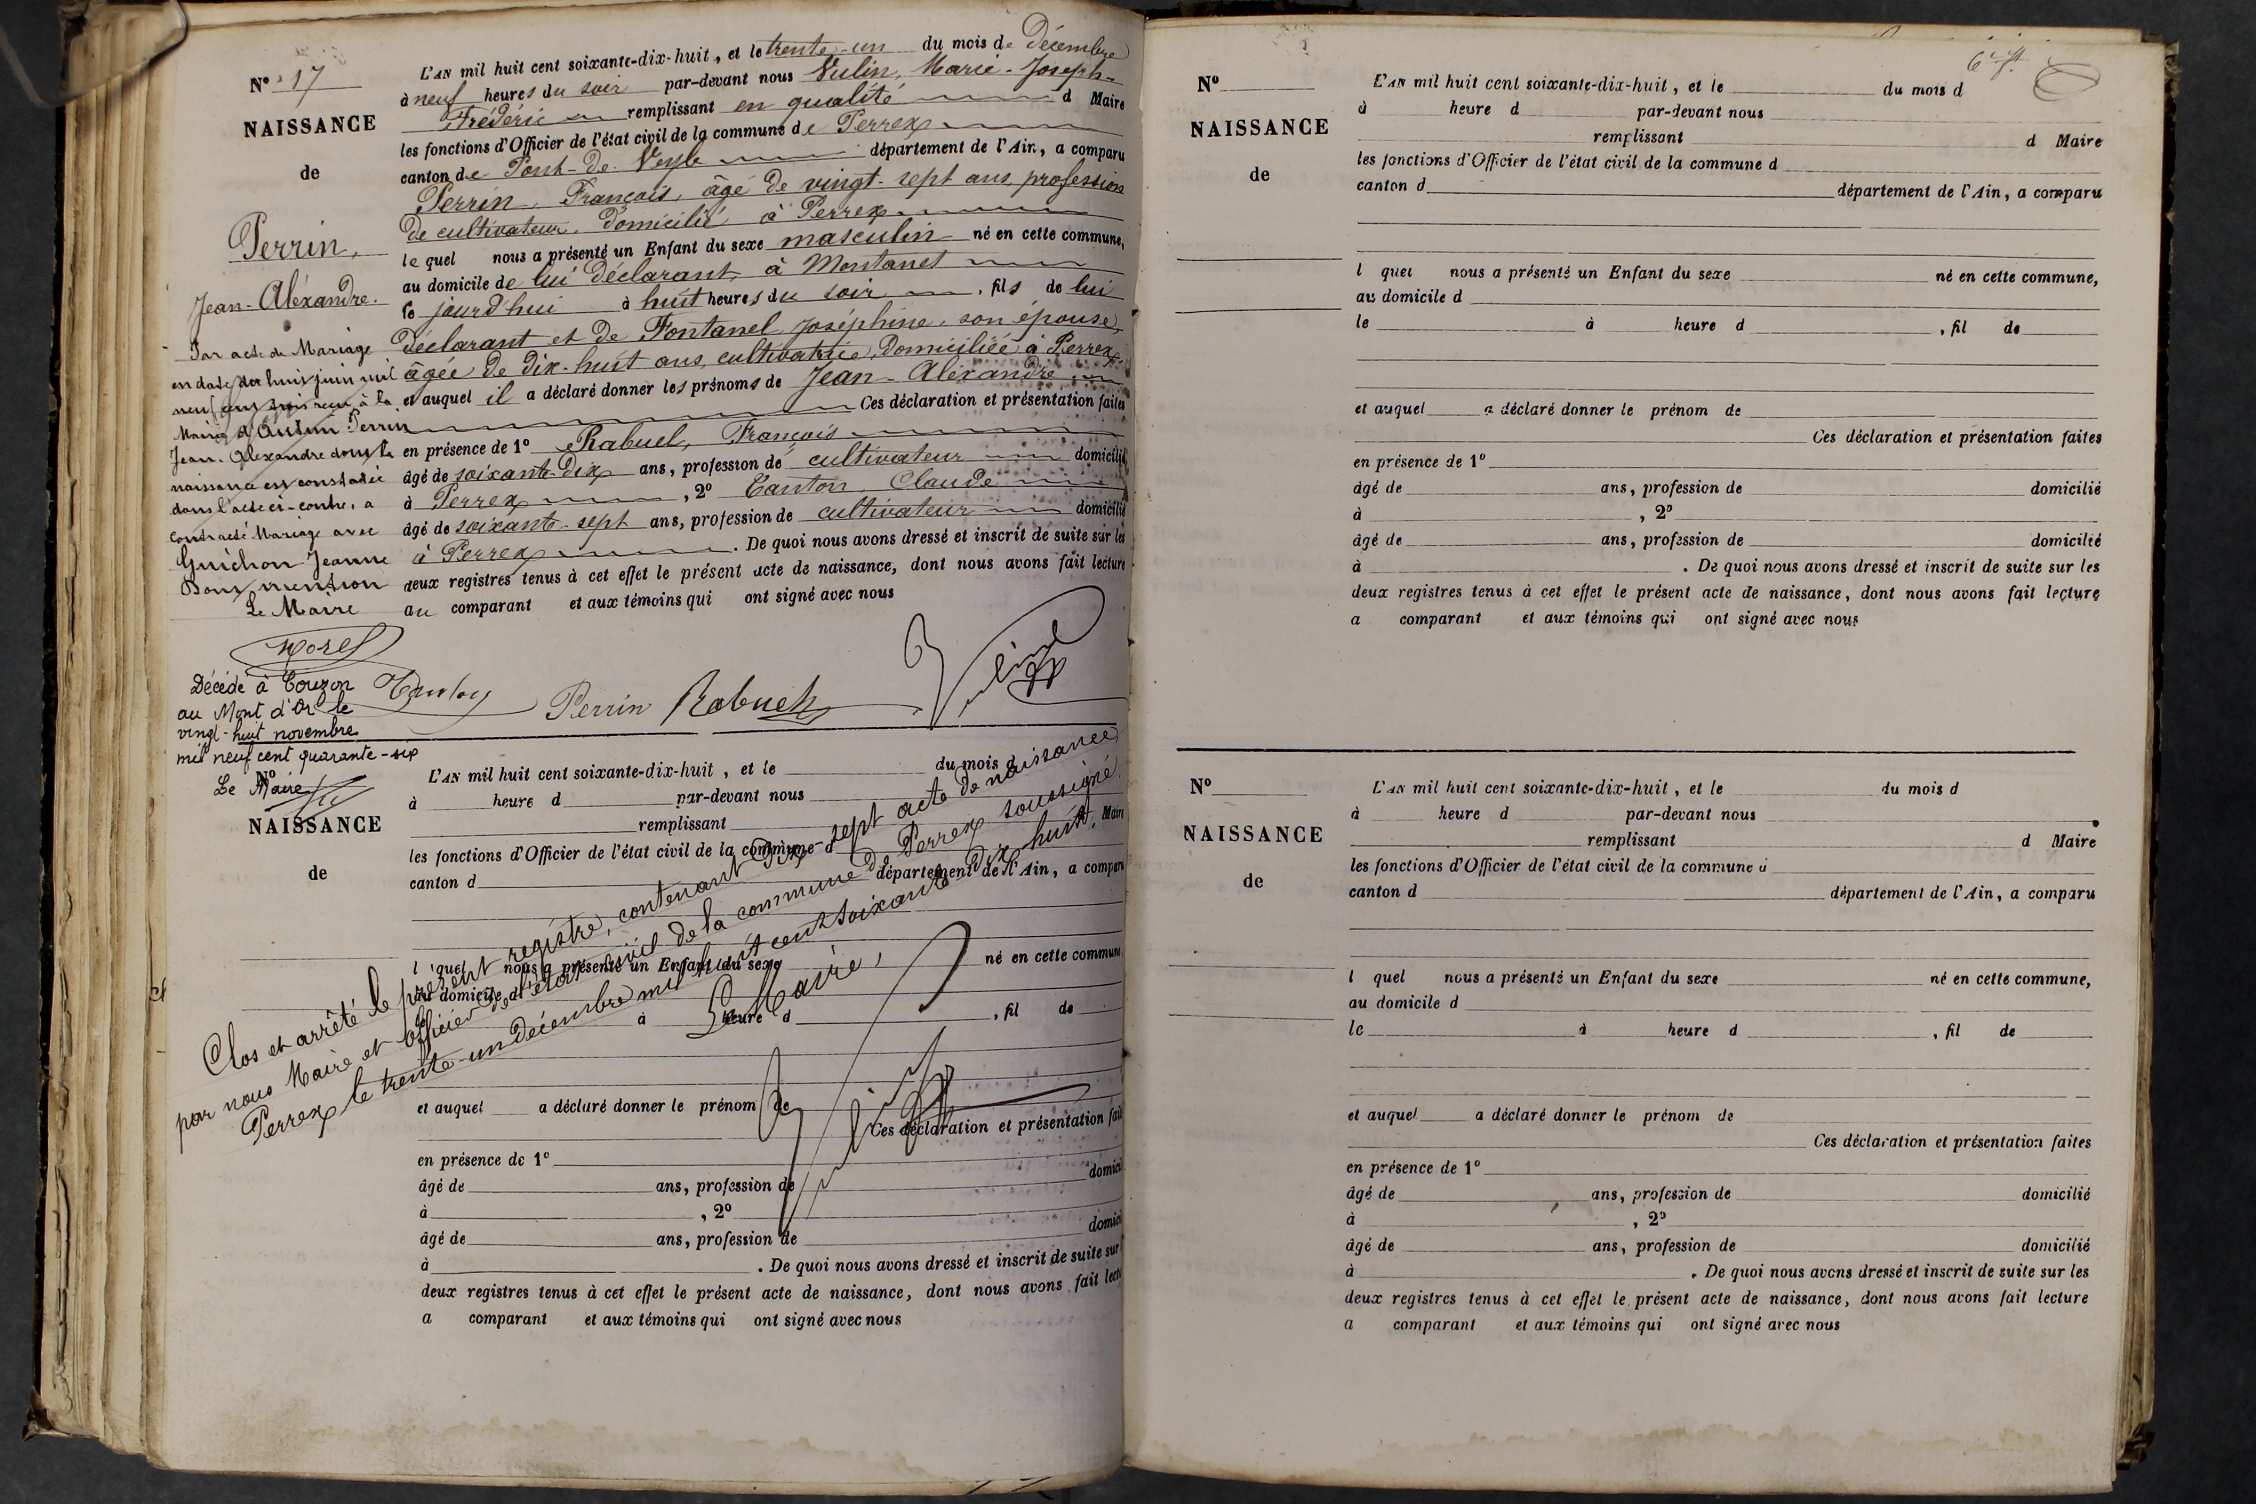 N° 17
NAISSANCE
de
Perrin,
Jean-Aléxandre.
L'AN mil huit cent soixante-dix-huit, et le trente-un du mois de Décembre
à neuf heures du soir par-devant nous Vulin, Marie-Joseph-
Frédéric remplissant en qualité d Maire
les fonctions d'Officier de l'état civil de la commune de Perrex
canton de Pont-de-Veyle département de l'Ain, a comparu
Perrin, François, âgé de vingt-sept ans, profession
de cultivateur, domicilié à Perrex
le quel nous a présenté un Enfant du sexe masculin né en cette commune,
au domicile de lui déclarant, à Montanet
le jourd'hui à huit heures du soir, fils de lui
déclarant et de Fontanel Joséphine, son épouse,
âgée de dix-huit ans, cultivatrice, domiciliée à Perrex
et auquel il a déclaré donner les prénoms de Jean-Aléxandre
Ces déclaration et présentation faites
en présence de 1° Rabuel, François
âgé de soixante-dix ans, profession de cultivateur domicilié
à Perrex, 2° Canton, Claude
âgé de soixante-sept ans, profession de cultivateur domicilié
à Perrex. De quoi nous avons dressé et inscrit de suite sur les
deux registres tenus à cet effet le présent acte de naissance, dont nous avons fait lecture
au comparant et aux témoins qui ont signé avec nous
Par acte de Mariage
en date du huit juin mil
neuf cent reçu à la
Mairie d'Autun Perrin
Jean-Alexandre dont la
naissance est constatée
dans l'acte ci-contre, a
contracté Mariage avec
Guichon Jeanne
Pour mention
Le Maire
Morel
Perrin Rabuel
Décédé à Couzon
au Mont d'Or le
vingt-huit novembre
mil neuf cent quarante-six
Le Maire
N°
NAISSANCE
de
L'AN mil huit cent soixante-dix-huit, et le du mois d
à heure d par-devant nous
remplissant d Maire
les fonctions d'Officier de l'état civil de la commune d
canton d département de l'Ain, a comparu
l quel nous a présenté un Enfant du sexe né en cette commune
au domicile d
le à heure d , fil de
et auquel a déclaré donner le prénom de
Ces déclaration et présentation fait
en présence de 1°
âgé de ans, profession de domicil
à , 2°
âgé de ans, profession de domici
à . De quoi nous avons dressé et inscrit de suite sur
deux registres tenus à cet effet le présent acte de naissance, dont nous avons fait lect
a comparant et aux témoins qui ont signé avec nous
Clos et arrêté le présent registre, contenant dix-sept acte de naissance
par nous Maire et officier de l'état civil de la commune de Perrex soussigné.
Perrex le trente-un décembre mil huit cent soixante-dix-huit.
Le Maire,
N°
NAISSANCE
de
L'AN mil huit cent soixante-dix-huit, et le du mois d
à heure d par-devant nous
remplissant d Maire
les fonctions d'Officier de l'état civil de la commune d
canton d département de l'Ain, a comparu
l quel nous a présenté un Enfant du sexe né en cette commune,
au domicile d
le à heure d , fil de
et auquel a déclaré donner le prénom de
Ces déclaration et présentation faites
en présence de 1°
âgé de ans, profession de domicilié
à , 2°
âgé de ans, profession de domicilié
à . De quoi nous avons dressé et inscrit de suite sur les
deux registres tenus à cet effet le présent acte de naissance, dont nous avons fait lecture
a comparant et aux témoins qui ont signé avec nous
N°
NAISSANCE
de
L'AN mil huit cent soixante-dix-huit, et le du mois d
à heure d par-devant nous
remplissant d Maire
les fonctions d'Officier de l'état civil de la commune d
canton d département de l'Ain, a comparu
l quel nous a présenté un Enfant du sexe né en cette commune,
au domicile d
le à heure d , fil de
et auquel a déclaré donner le prénom de
Ces déclaration et présentation faites
en présence de 1°
âgé de ans, profession de domicilié
à , 2°
âgé de ans, profession de domicilié
à . De quoi nous avons dressé et inscrit de suite sur les
deux registres tenus à cet effet le présent acte de naissance, dont nous avons fait lecture
a comparant et aux témoins qui ont signé avec nous